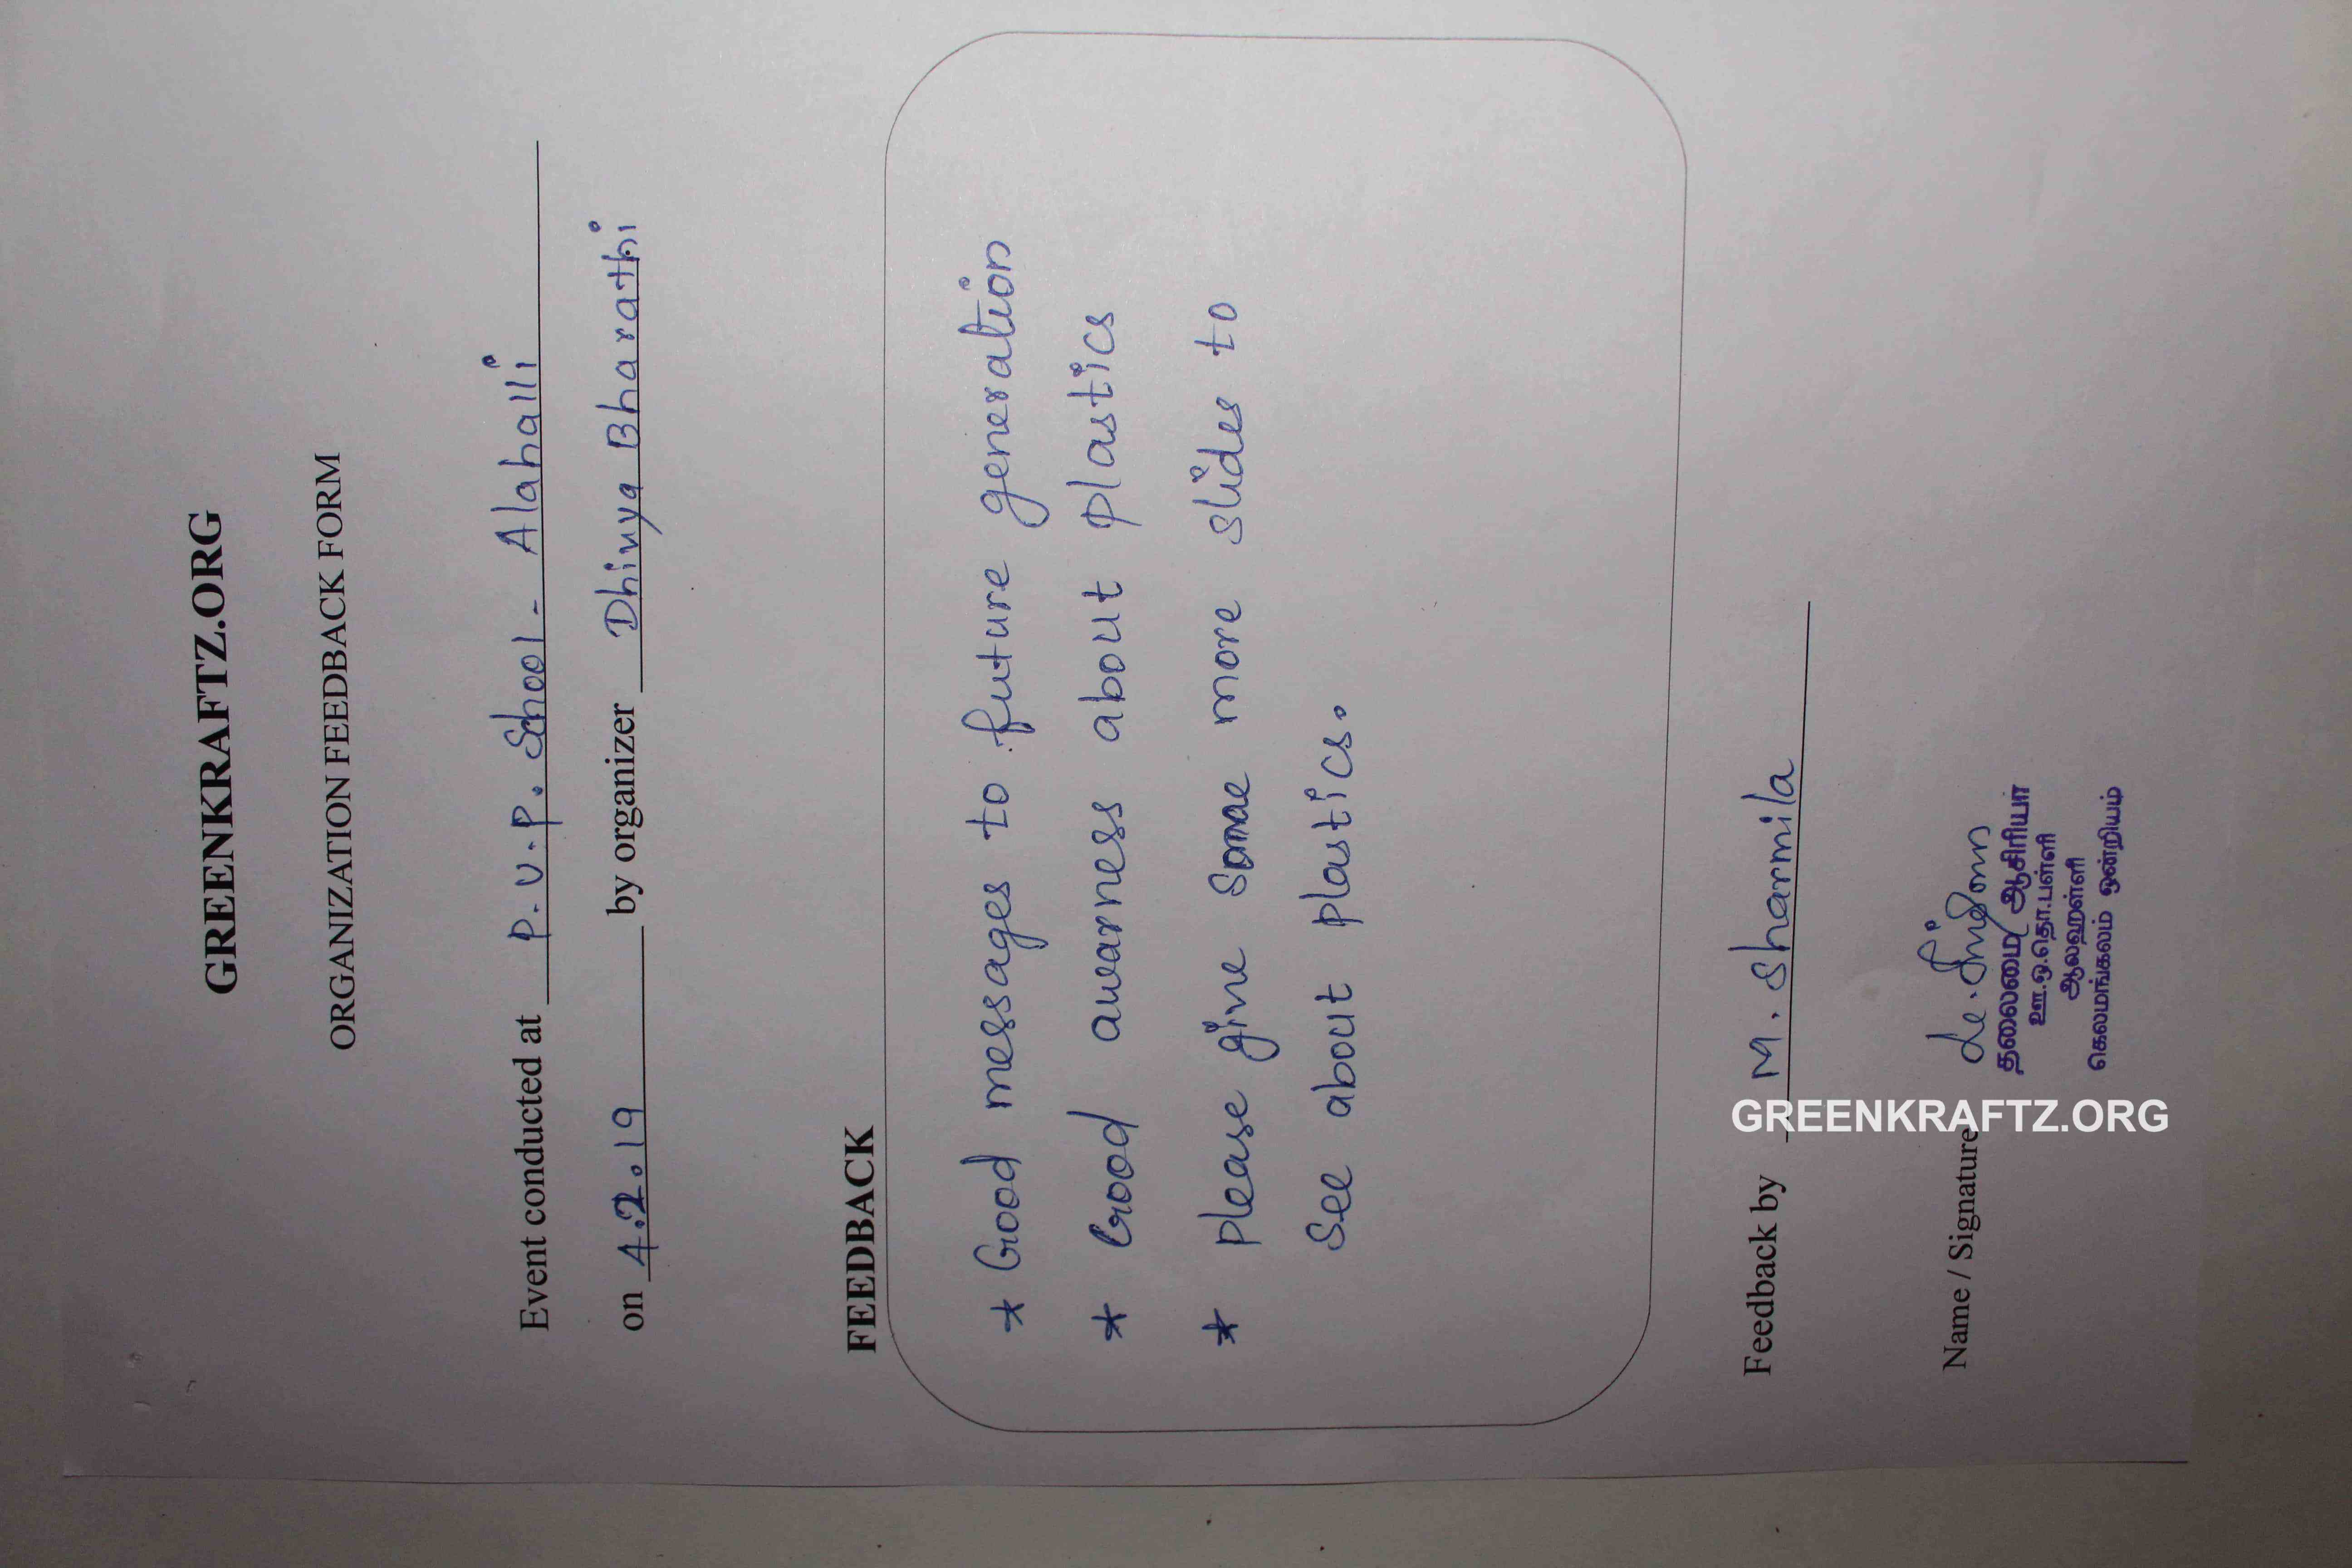 GREENKRAFTZ.ORG
ORGANIZATION FEEDBACK FORM
Event conducted at P.U.P. School - Alahalli
on 4.2.19 by organizer Dhivya Bharathi
FEEDBACK
* Good messages to future generation
* Good awarness about plastics
* please give some more slides to
see about plastics.
Feedback by M. Sharmila
Name / Signature
தலைமை ஆசிரியர்
ஊ.ஒ.தொ.பள்ளி
ஆலஹள்ளி
கெலமங்கலம் ஒன்றியம்
GREENKRAFTZ.ORG